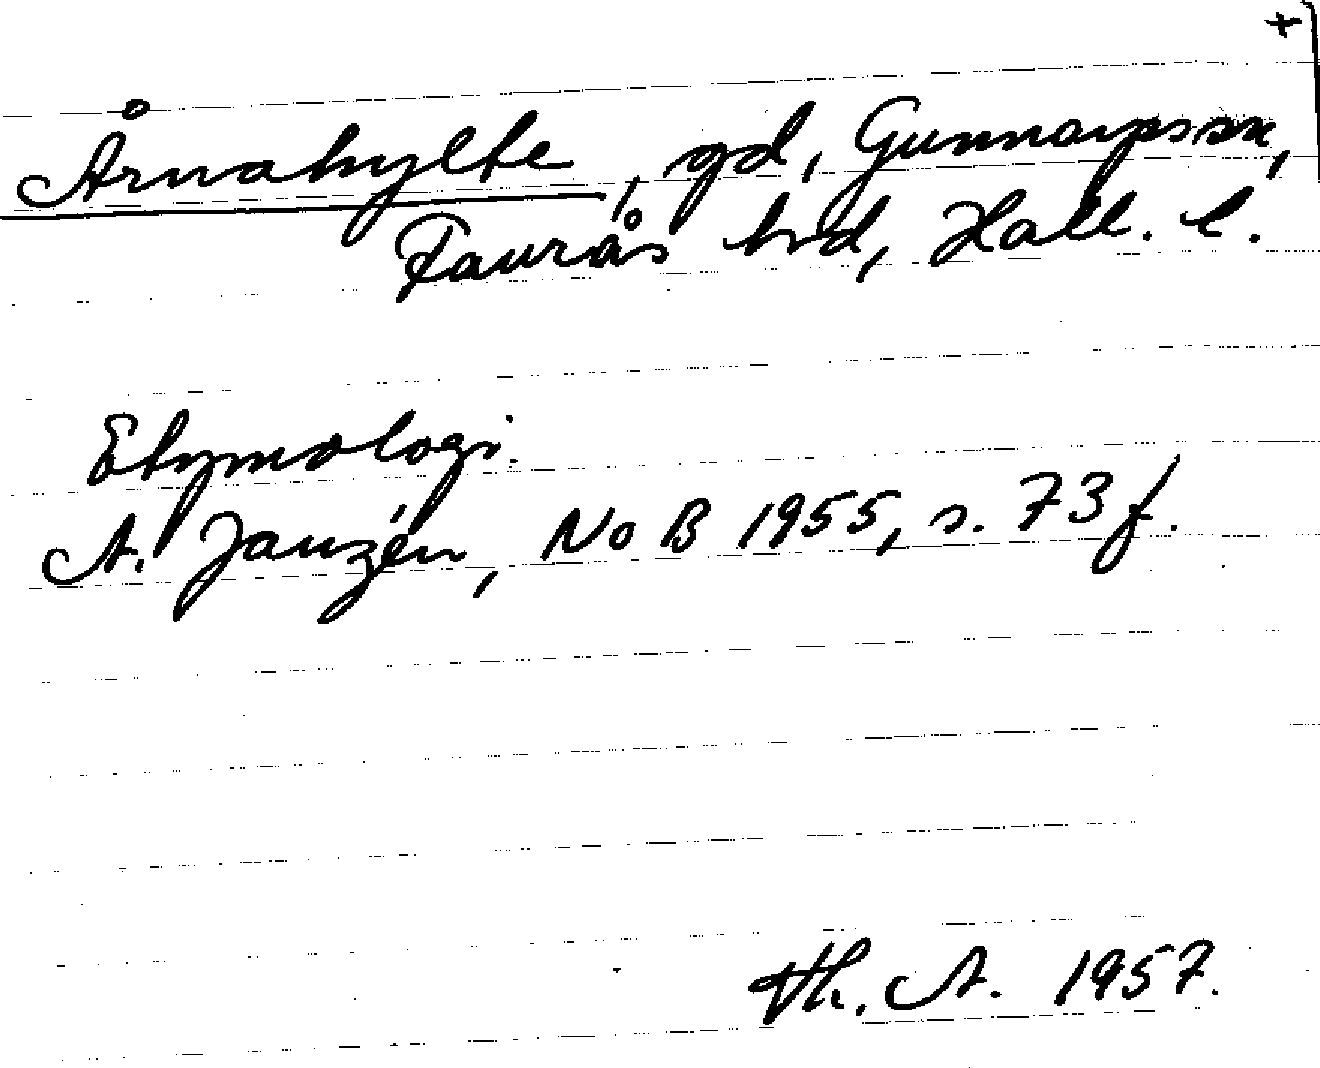 +
Årnahylte, gd, Gunnarpssn,
Faurås hrd, Hall. l.
Etymologi.
A. Janzén, NoB 1955, s. 73 f.
Th. A. 1957.